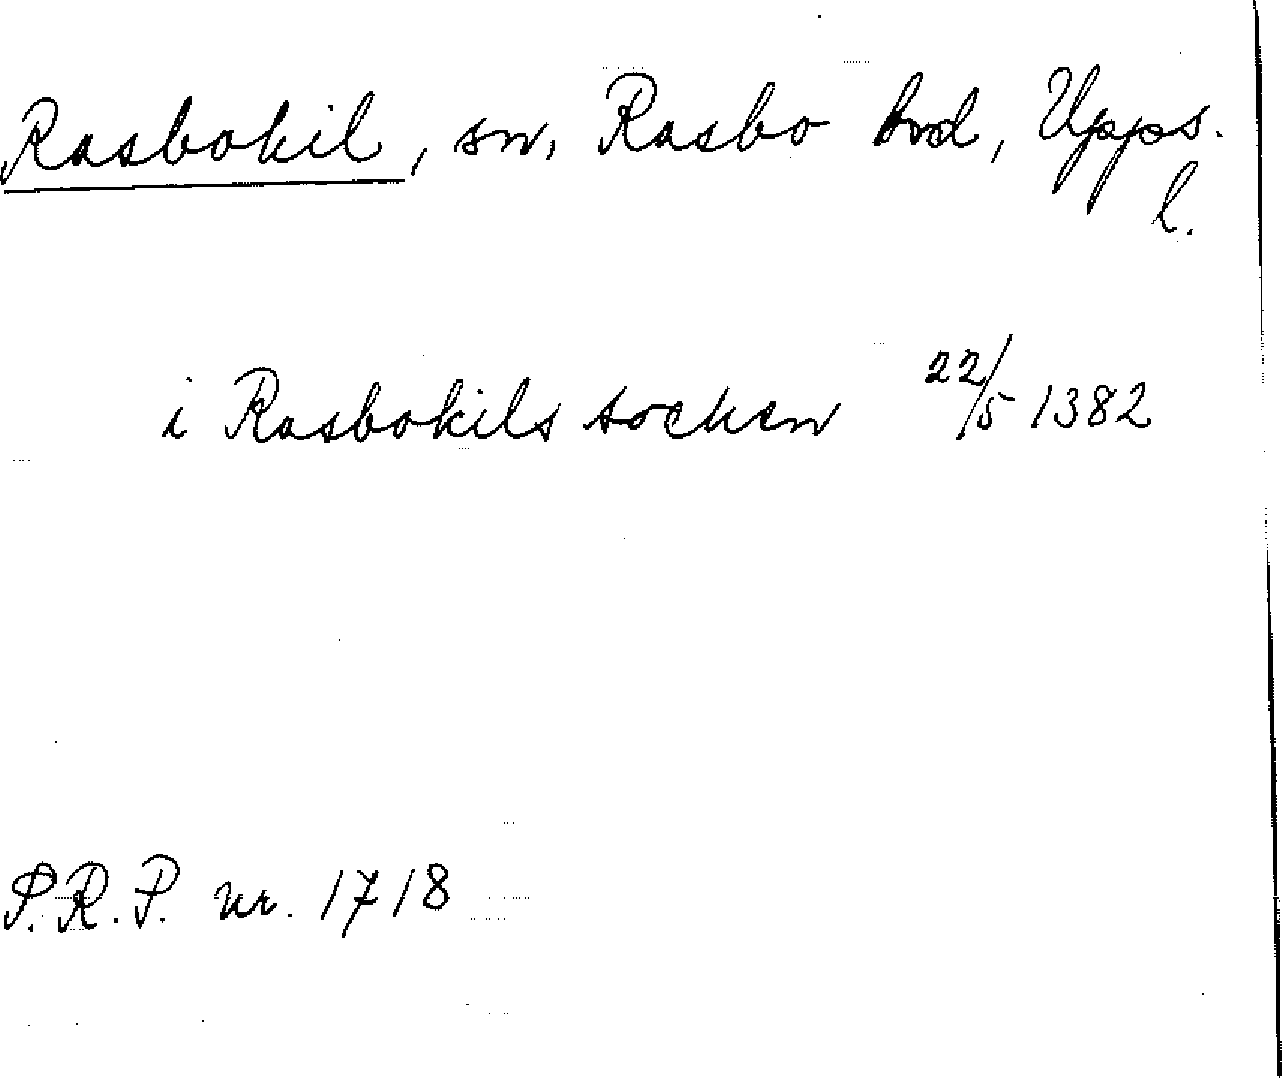 Rasbokil, sn, Rasbo hvd, Upps.
l.
i Rasbokils socken 22/5 1382
P.R.P. nr. 1718